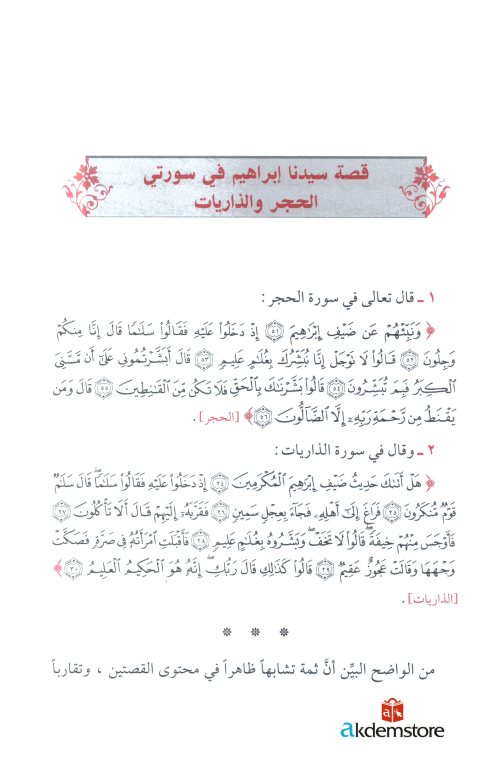 قصة سيدنا إبراهيم في سورتي
الحجر والذاريات
١ ـ قال تعالى في سورة الحجر:
﴿ وَنَبِّئْهُمْ عَن ضَيْفِ إِبْرَٰهِيمَ ۝٥١ إِذْ دَخَلُوا۟ عَلَيْهِ فَقَالُوا۟ سَلَٰمًا قَالَ إِنَّا مِنكُمْ
وَجِلُونَ ۝٥٢ قَالُوا۟ لَا تَوْجَلْ إِنَّا نُبَشِّرُكَ بِغُلَٰمٍ عَلِيمٍ ۝٥٣ قَالَ أَبَشَّرْتُمُونِى عَلَىٰٓ أَن مَّسَّنِىَ
ٱلْكِبَرُ فَبِمَ تُبَشِّرُونَ ۝٥٤ قَالُوا۟ بَشَّرْنَٰكَ بِٱلْحَقِّ فَلَا تَكُن مِّنَ ٱلْقَٰنِطِينَ ۝٥٥ قَالَ وَمَن
يَقْنَطُ مِن رَّحْمَةِ رَبِّهِۦٓ إِلَّا ٱلضَّآلُّونَ ۝٥٦ ﴾ [الحجر].
٢ ـ وقال في سورة الذاريات:
﴿ هَلْ أَتَىٰكَ حَدِيثُ ضَيْفِ إِبْرَٰهِيمَ ٱلْمُكْرَمِينَ ۝٢٤ إِذْ دَخَلُوا۟ عَلَيْهِ فَقَالُوا۟ سَلَٰمًا قَالَ سَلَٰمٌ
قَوْمٌ مُّنكَرُونَ ۝٢٥ فَرَاغَ إِلَىٰٓ أَهْلِهِۦ فَجَآءَ بِعِجْلٍ سَمِينٍ ۝٢٦ فَقَرَّبَهُۥٓ إِلَيْهِمْ قَالَ أَلَا تَأْكُلُونَ ۝٢٧
فَأَوْجَسَ مِنْهُمْ خِيفَةً قَالُوا۟ لَا تَخَفْ وَبَشَّرُوهُ بِغُلَٰمٍ عَلِيمٍ ۝٢٨ فَأَقْبَلَتِ ٱمْرَأَتُهُۥ فِى صَرَّةٍ فَصَكَّتْ
وَجْهَهَا وَقَالَتْ عَجُوزٌ عَقِيمٌ ۝٢٩ قَالُوا۟ كَذَٰلِكِ قَالَ رَبُّكِ إِنَّهُۥ هُوَ ٱلْحَكِيمُ ٱلْعَلِيمُ ۝٣٠ ﴾
[الذاريات].
* * *
من الواضح البيِّن أنَّ ثمة تشابهاً ظاهراً في محتوى القصتين ، وتقارباً
akdemstore